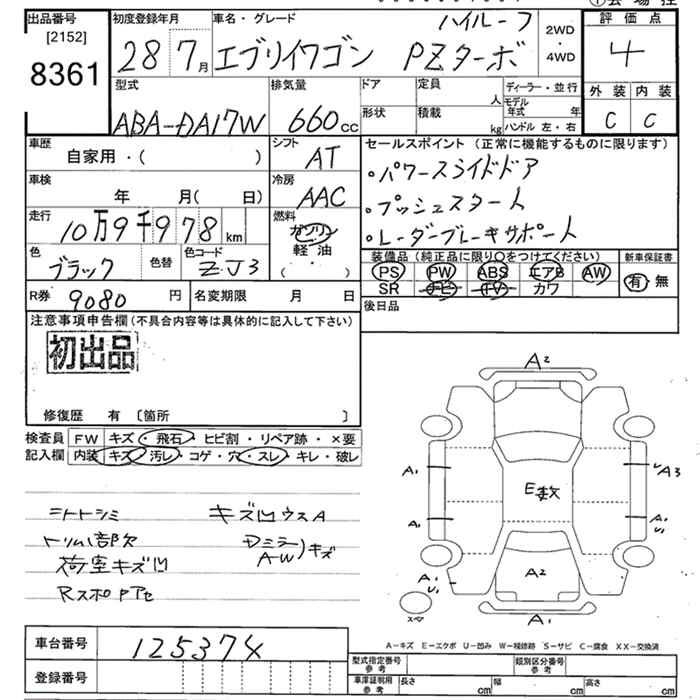 ハイルーフ
①会場控
出品番号
[2152]
8361
初度登録年月
28年7月
車名・グレード
エブリイワゴン PZターボ
2WD
・
4WD
評価点
4
外装 内装
C C
型式
ABA-DA17W
排気量
660cc
ドア
形状
定員
人
積載
kg
ディーラー・並行
モデル年式 年
ハンドル 左・右
車歴
自家用・( )
シフト
AT
車検
年 月( 日)
冷房
AAC
走行
10万9千978km
燃料
ガソリン
軽油
( ・ )
色
ブラック
色替
色コード
ZJ3
R券 9080円
名変期限 月 日
セールスポイント(正常に機能するものに限ります)
・パワースライドドア
・プッシュスタート
・レーダーブレーキサポート
装備品(純正品に限り○をつけてください)
PS PW ABS エアB AW
SR ナビ TV カワ
新車保証書
有・無
後日品
注意事項申告欄(不具合内容等は具体的に記入して下さい)
初出品
修復歴 有 〔箇所 〕
検査員記入欄
FW キズ・飛石・ヒビ割・リペア跡・×要
内装 キズ・汚レ・コゲ・穴・スレ・キレ・破レ
シートシミ
トリム部欠
荷室キズ凹
キズ凹ウスA
Dミラー
A-W)キズ
A2
A1
A3
E数
A1
A1
U1
A2
A1
U1
A1
A-キズ E-エクボ U-凹み W-補修跡 S-サビ C-腐食 XX-交換済
車台番号 125374
登録番号
型式指定番号 参考
類別区分番号 参考
車庫証明用 参考
長さ cm 幅 cm 高さ cm